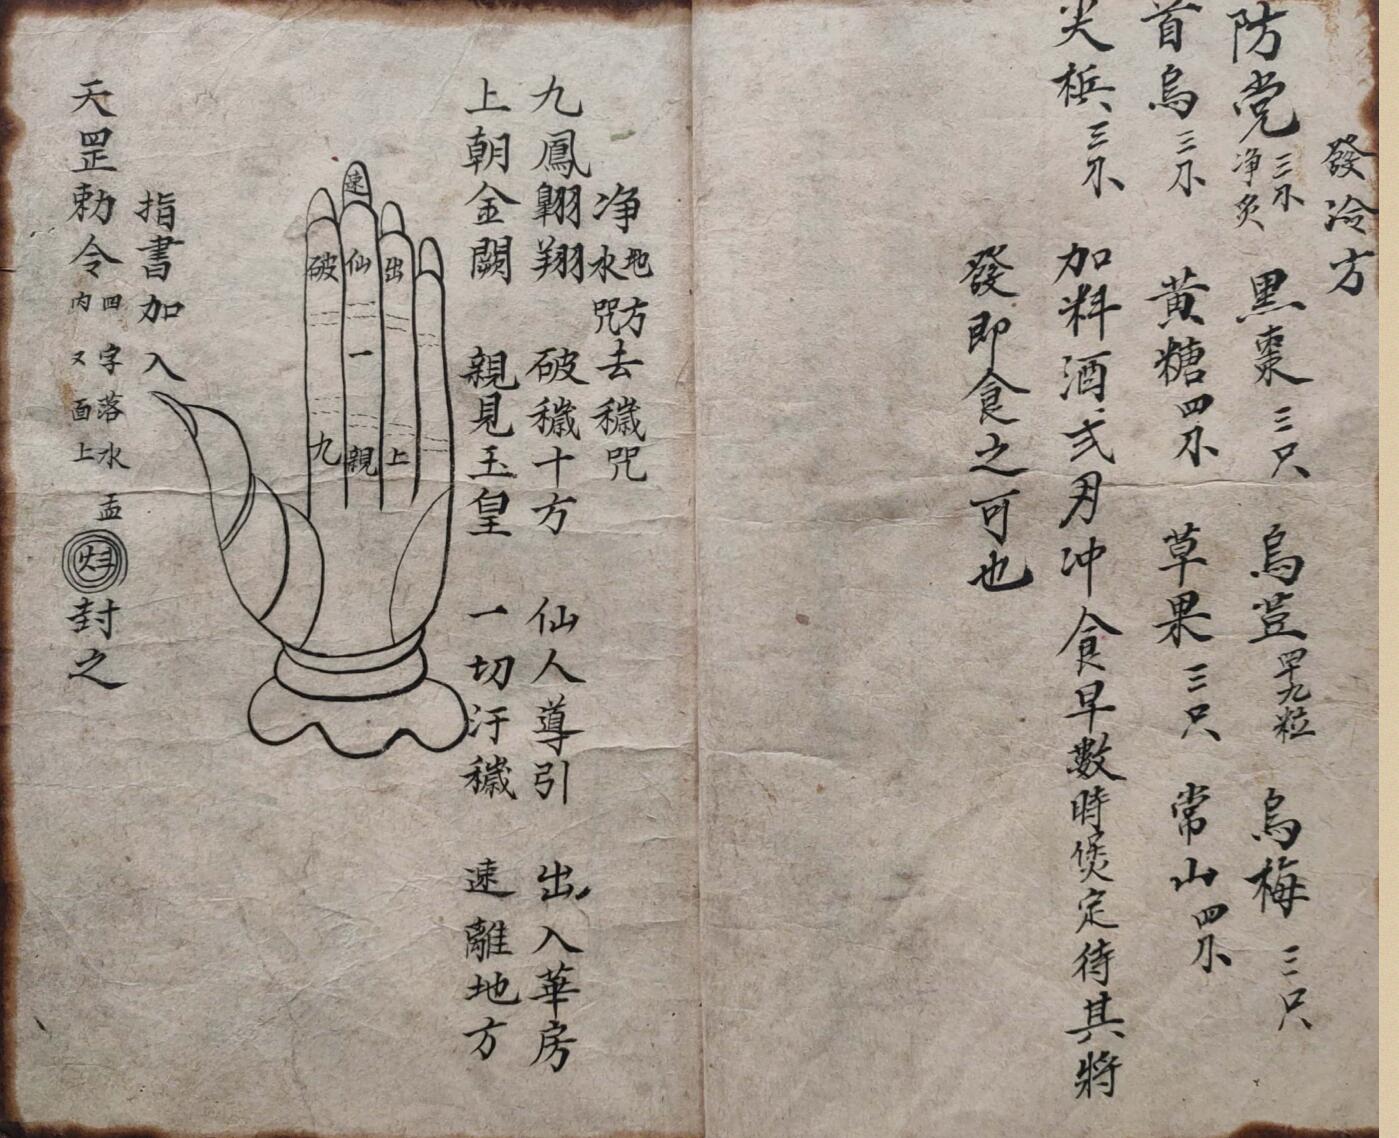 發冷方
防党三不 净炙 黑棗三只 烏荳四十九粒 烏梅三只
首烏三不 黄糖四不 草果三只 常山四不
尖梹三不 加料酒弍刄冲食早數時煲定待其將
發即食之可也
净水咒 地方去穢咒
九鳳翺翔 破穢十方 仙人導引 出入華房
上朝金闕 親見玉皇 一切汙穢 速離地方
速
破 仙 出
一
九 親 上
指書加入
天罡勅令 四字落水盂内又面上 封之